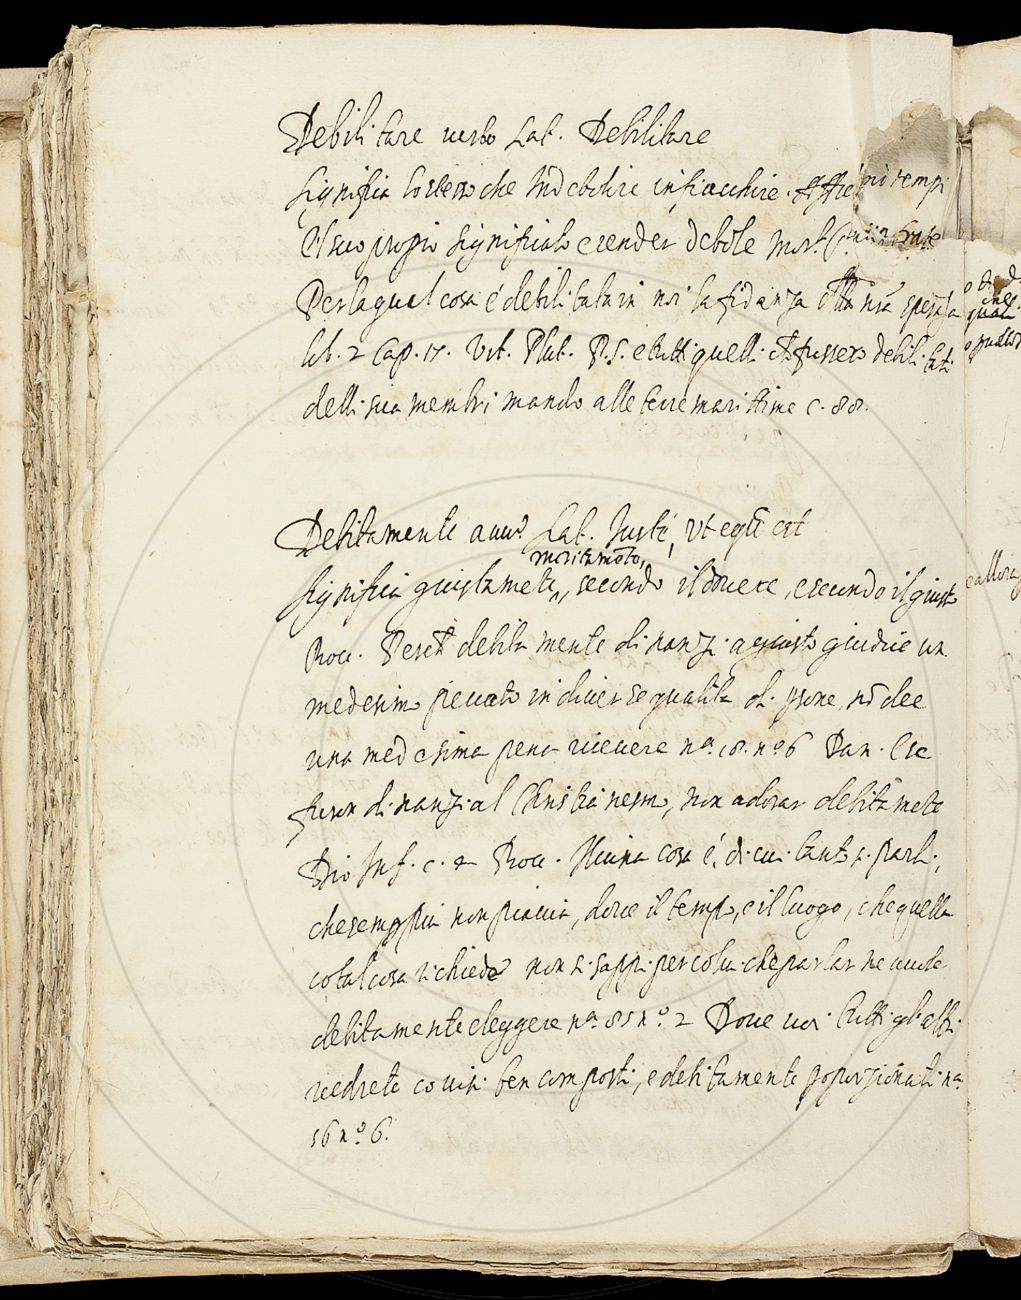 Debilitare uerbo Lat. Debilitare
significa lo stesso che Indebolire infiacchire.
Il suo propio significato è render debole
Per la qual cosa é debilitata in noi la fidanza
lib. 2 Cap. 17. Vit. Plut. P. S. e tutti quelli ch fussero debilitati
delli sua membri mando alle terre marittime c. 88.
Debitamente auu. Lat. Iusté, Vt equũ est
meritamẽte,
significa giustamẽte, secondo il douere, e secondo il giusto
Bocc. debitamente dinanzi a giusto giudice un
medesimo peccato in diuerse qualita di psone, nõ dee
una medesima pena riceuere n.a 18. n.o 6 Dan. E se
furon dinanzi al Christianesmo, non adorar debitamẽte
Dio Inf. c. 4 Bocc. Niuna cosa é, di cui tanto si parli,
che sempre piu non piaccia, doue il tempo, e il luogo, che quella
cotal cosa richiede non si sappi per colui che parlar ne uuole
debitamente eleggere n.a 85 n.o 2 Doue uoi tutti gl'altri
uedrete co uisi ben composti, e debitamente proporzionati n.a
56 n.o 6.